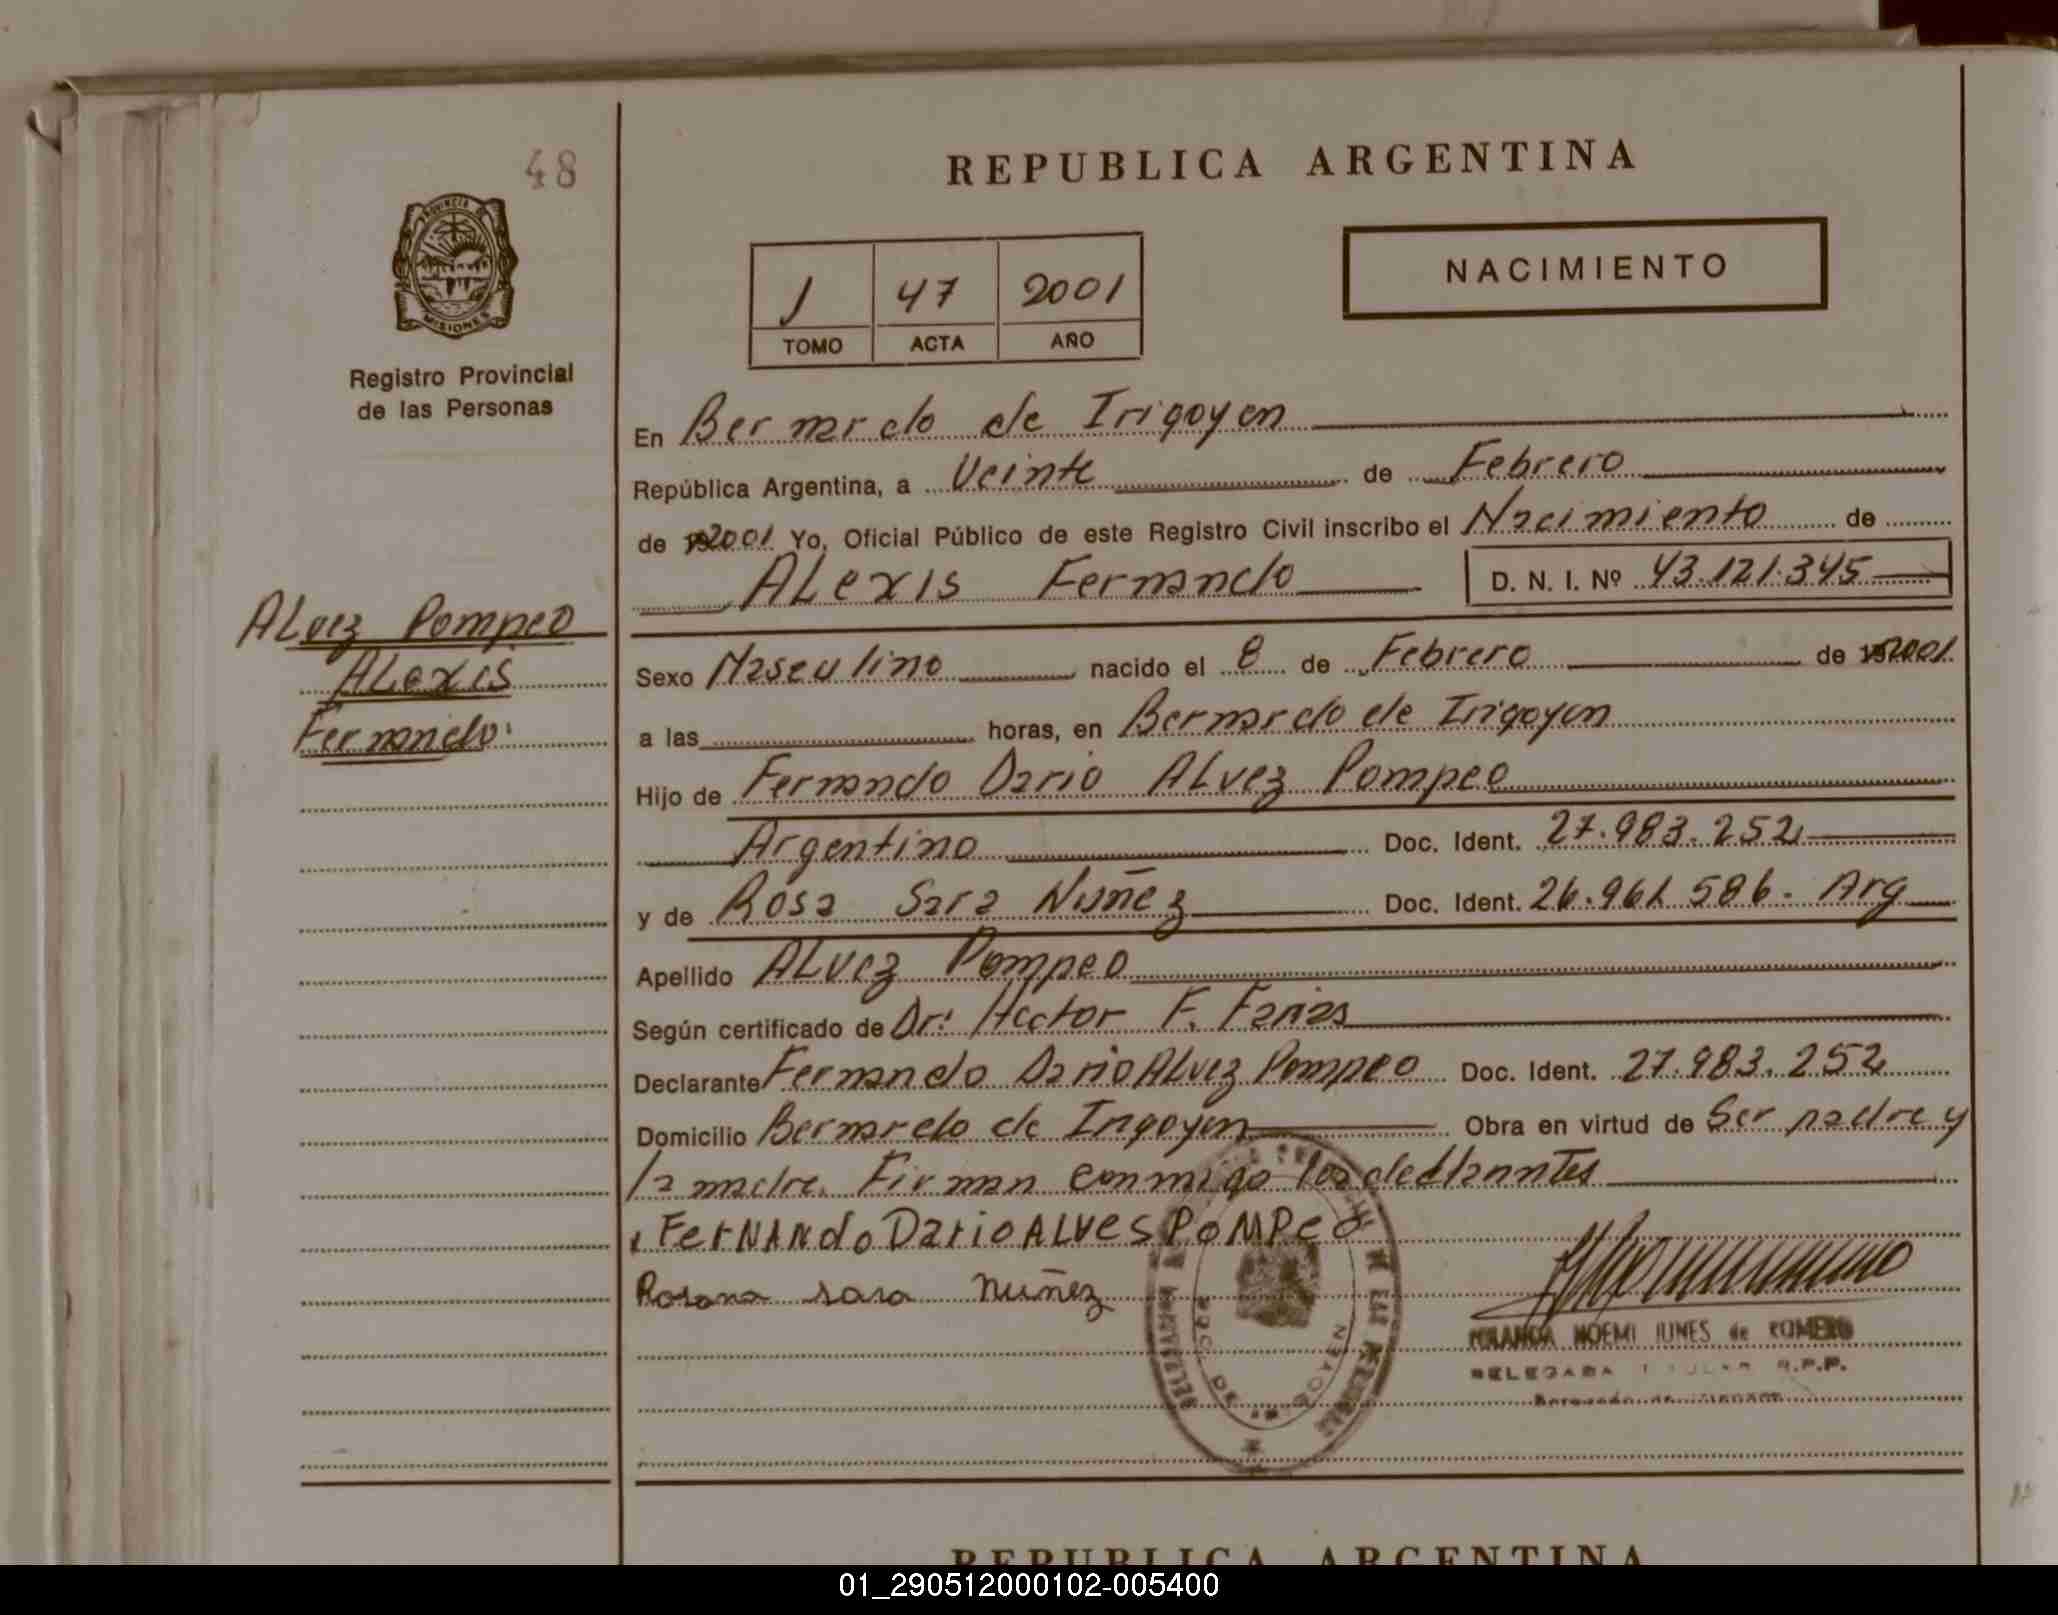 48
REPUBLICA ARGENTINA
PROVINCIA DE
MISIONES
Registro Provincial
de las Personas
NACIMIENTO
1 47 2001
TOMO ACTA AÑO
En Bernardo de Irigoyen
República Argentina, a Veinte de Febrero
de 2001 Yo, Oficial Público de este Registro Civil inscribo el Nacimiento de
ALexis Fernando D. N. I. Nº 43.121.345
ALvez Pompeo
ALexis
Fernando
Sexo Masculino nacido el 8 de Febrero de 2001
a las horas, en Bernardo de Irigoyen
Hijo de Fernando Dario ALvez Pompeo
Argentino Doc. Ident. 27.983.252
y de Rosa Sara Nuñez Doc. Ident. 26.961.586. Arg
Apellido ALvez Pompeo
Según certificado de Dr: Hector F. Farias
Declarante Fernando Dario ALvez Pompeo Doc. Ident. 27.983.252
Domicilio Bernardo de Irigoyen Obra en virtud de Ser padre y
la madre. Firman conmigo los
FerNANdo Dario ALVes POMPeO
Rosana sara Nuñez
YOLANDA NOEMI IUNES de ROMERO
DELEGADA R.P.P.
REPUBLICA ARGENTINA
01_290512000102-005400